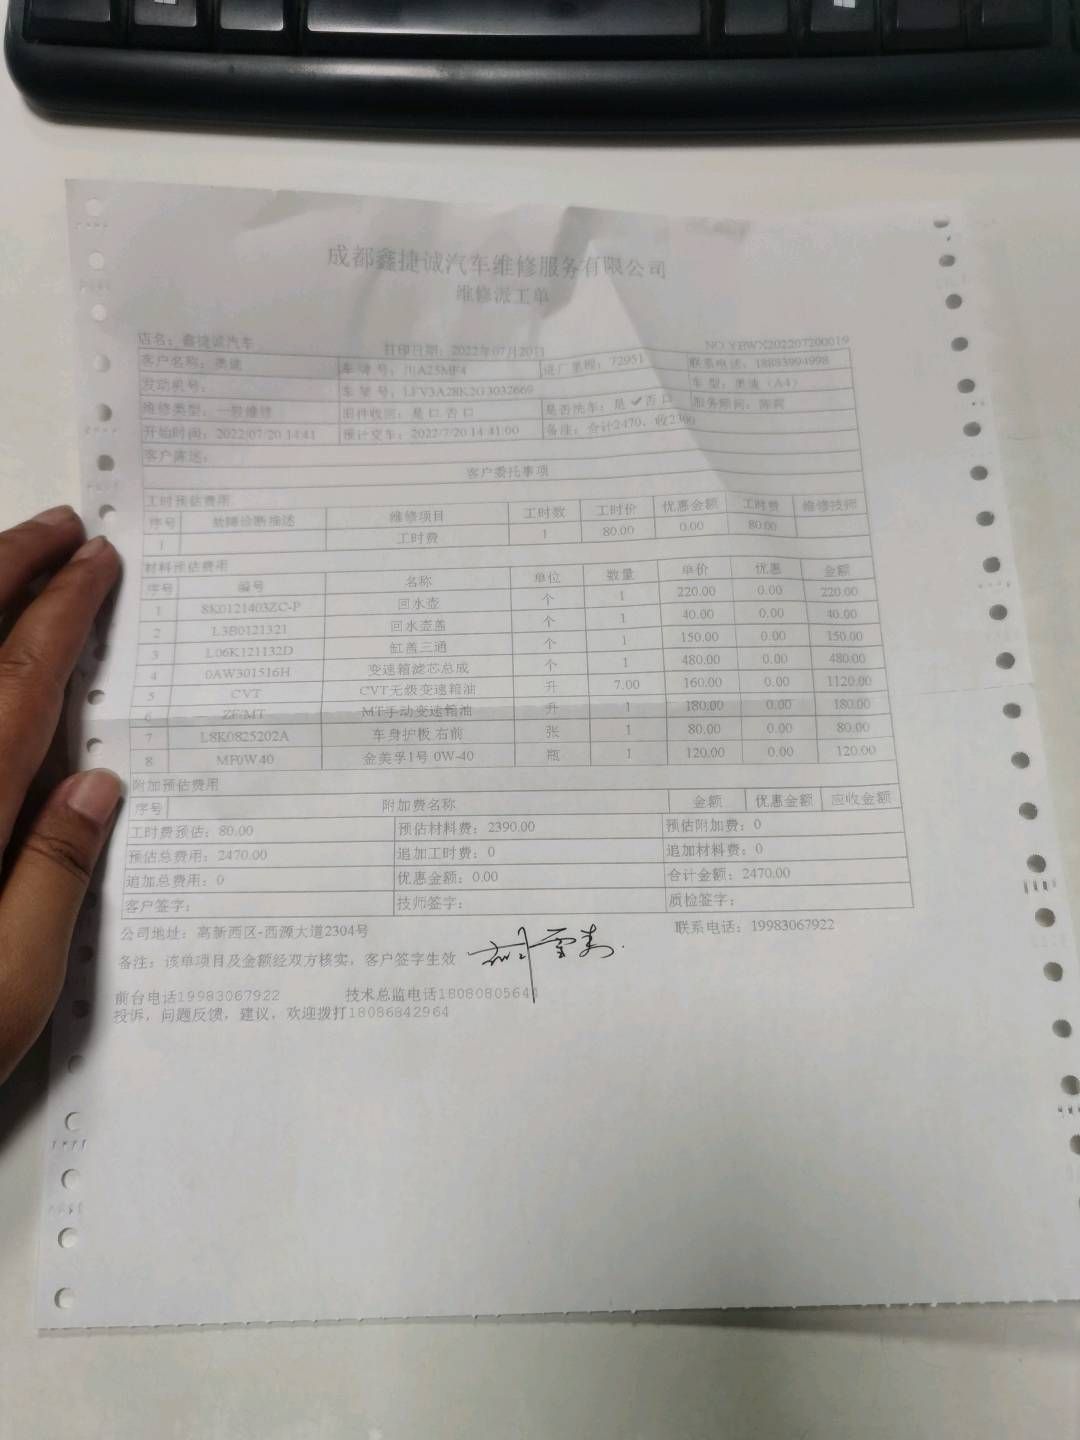 成都鑫捷诚汽车维修服务有限公司
维修派工单
店名：鑫捷诚汽车 打印日期：2022年07月20日 NO YBWX202207200019
客户名称：奥迪 车牌号：川A25MF4 进厂里程：72951 联系电话：18883994998
发动机号： 车架号：LFV3A28K2G3032669 车型：奥迪（A4）
维修类型：一般维修 旧件收回：是口 否口 是否洗车：是✓否口 服务顾问：陈莉
开始时间：2022/07/20 14:41 预计交车：2022/7/20 14:41:00 备注：合计2470，收2300
客户陈述：
客户委托事项
工时预估费用
序号 故障诊断描述 维修项目 工时数 工时价 优惠金额 工时费 维修技师
1 工时费 1 80.00 0.00 80.00
材料预估费用
序号 编号 名称 单位 数量 单价 优惠 金额
1 8K0121403ZC-P 回水壶 个 1 220.00 0.00 220.00
2 L3B0121321 回水壶盖 个 1 40.00 0.00 40.00
3 L06K121132D 缸盖三通 个 1 150.00 0.00 150.00
4 0AW301516H 变速箱滤芯总成 个 1 480.00 0.00 480.00
5 CVT CVT无级变速箱油 升 7.00 160.00 0.00 1120.00
6 ZF/MT MT手动变速箱油 升 1 180.00 0.00 180.00
7 L8K0825202A 车身护板 右前 张 1 80.00 0.00 80.00
8 MF0W40 金美孚1号 0W-40 瓶 1 120.00 0.00 120.00
附加预估费用
序号 附加费名称 金额 优惠金额 应收金额
工时费预估：80.00 预估材料费：2390.00 预估附加费：0
预估总费用：2470.00 追加工时费：0 追加材料费：0
追加总费用：0 优惠金额：0.00 合计金额：2470.00
客户签字： 技师签字： 质检签字：
公司地址：高新西区-西源大道2304号 联系电话：19983067922
备注：该单项目及金额经双方核实，客户签字生效
前台电话19983067922 技术总监电话18080805644
投诉，问题反馈，建议，欢迎拨打18086842964